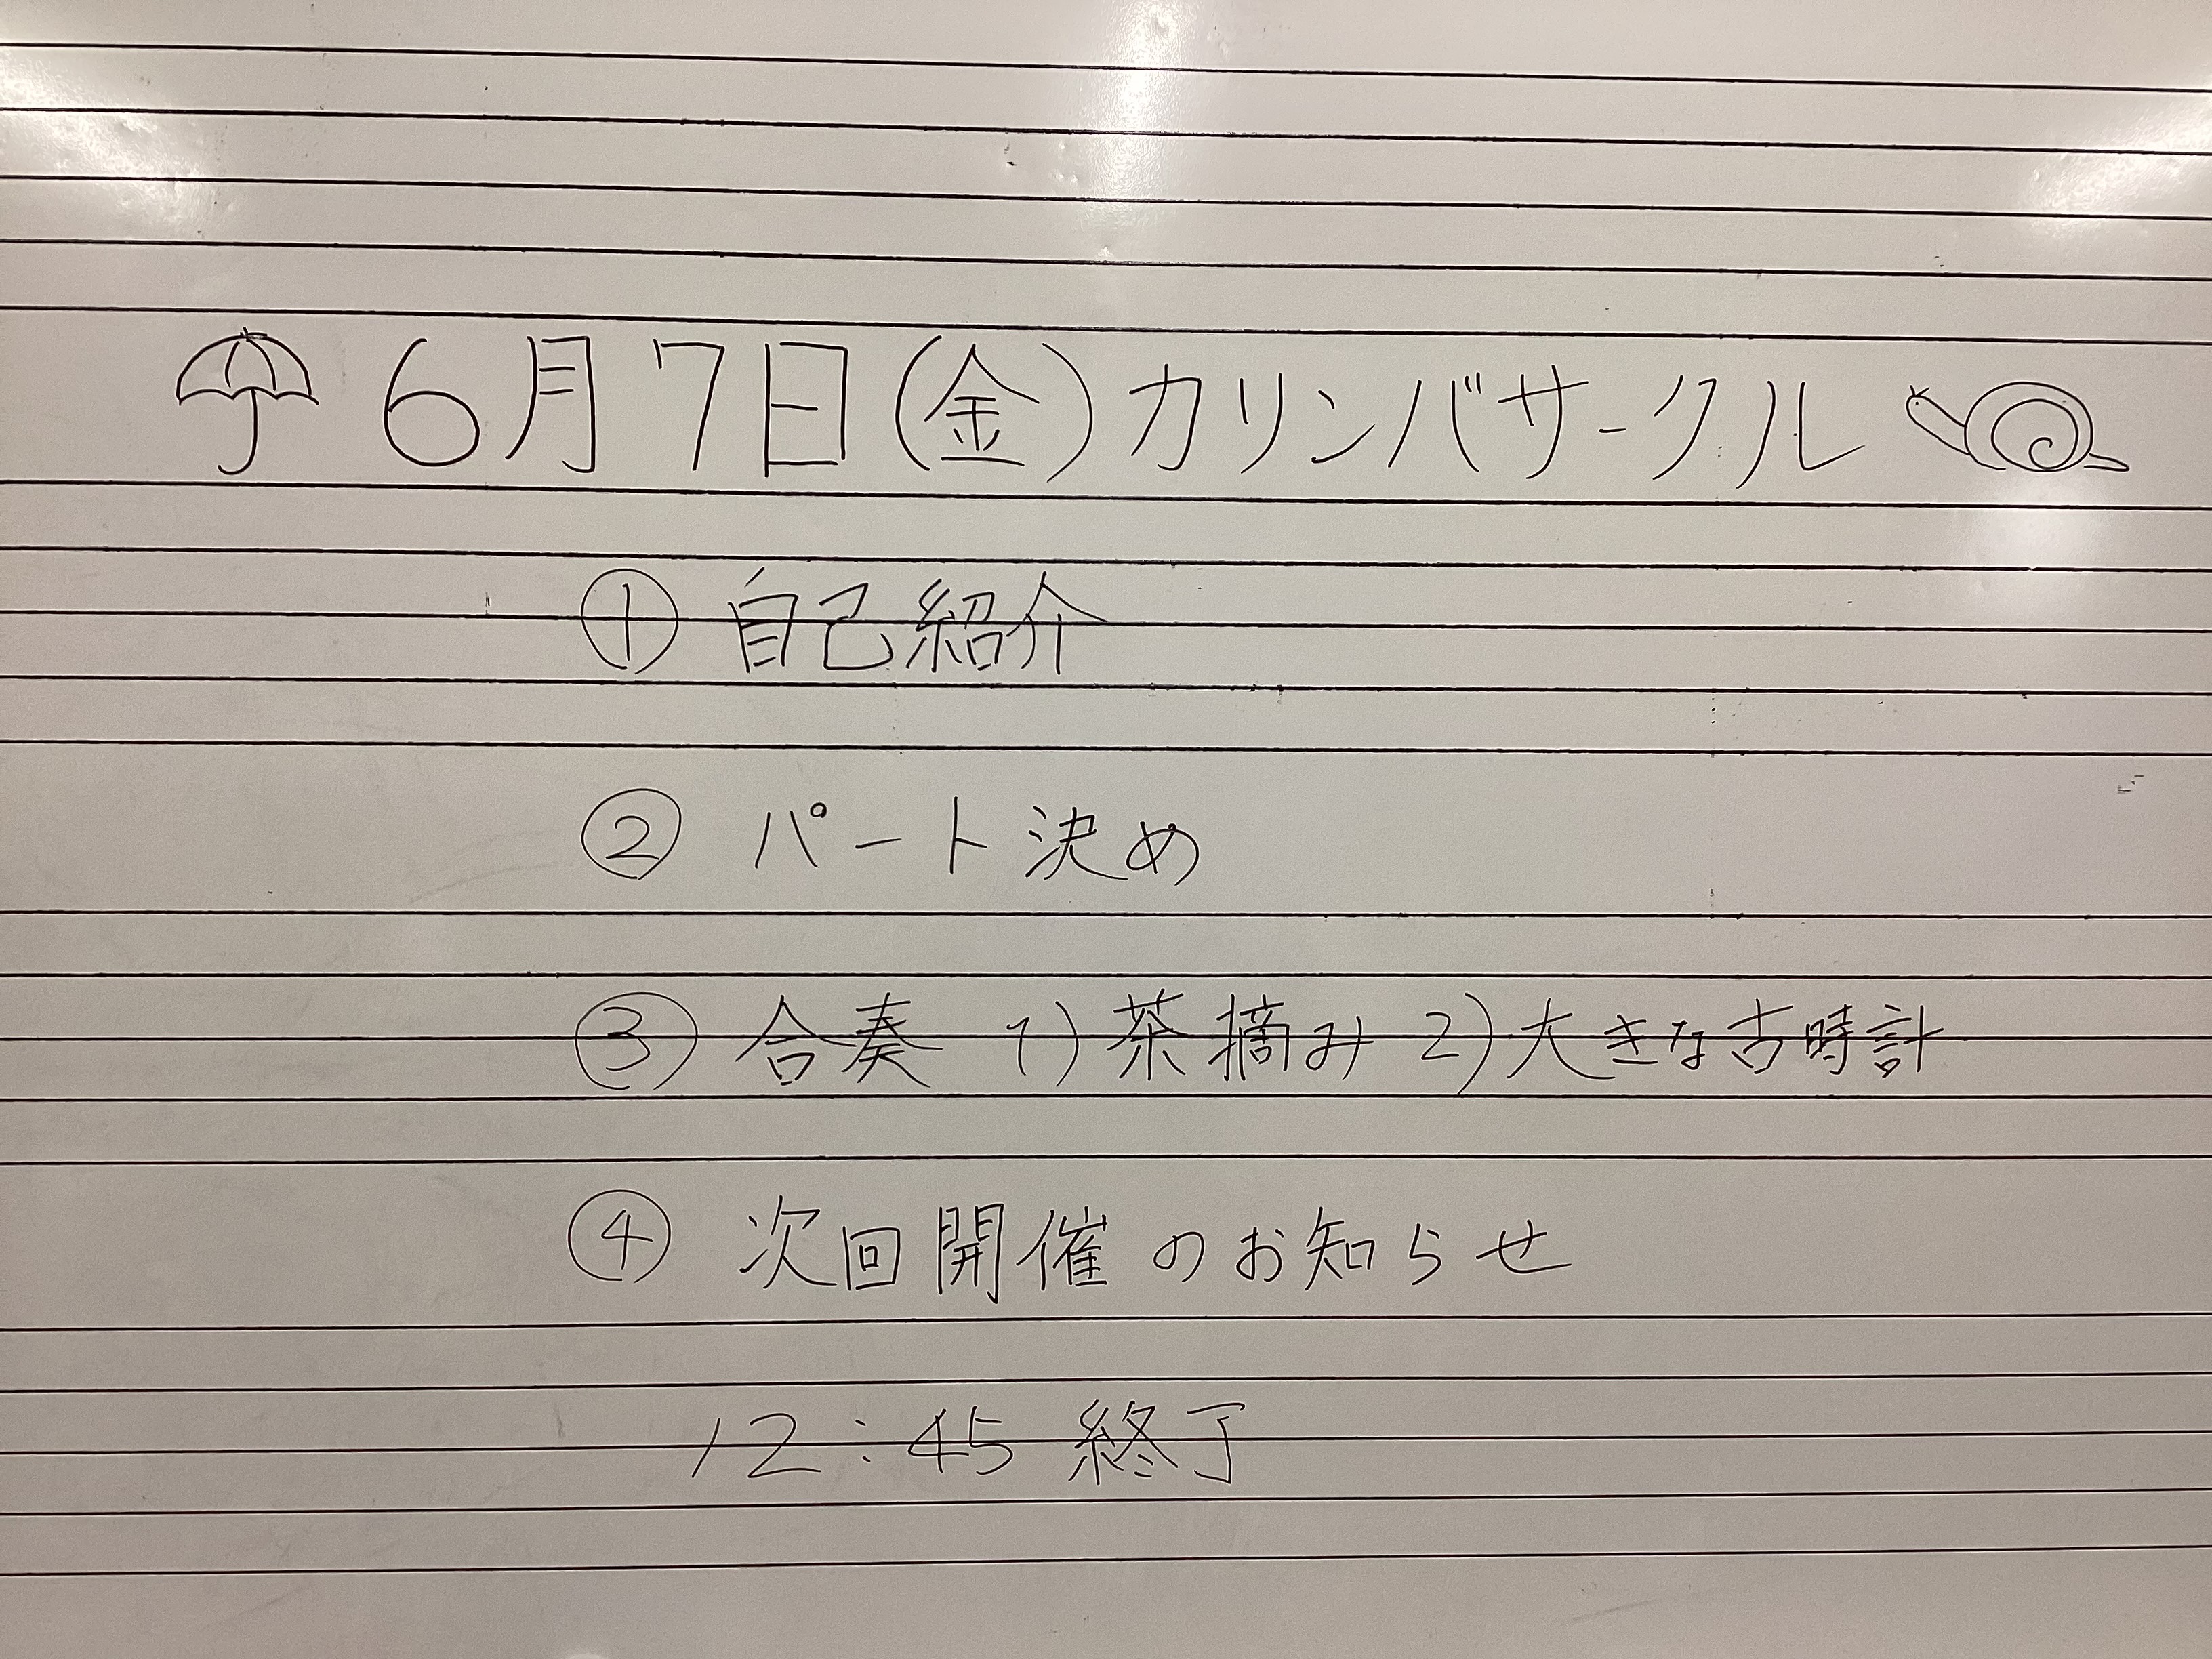 6月7日(金)カリンバサークル
① 自己紹介
② パート決め
③ 合奏 1)茶摘み 2)大きな古時計
④ 次回開催のお知らせ
12:45 終了